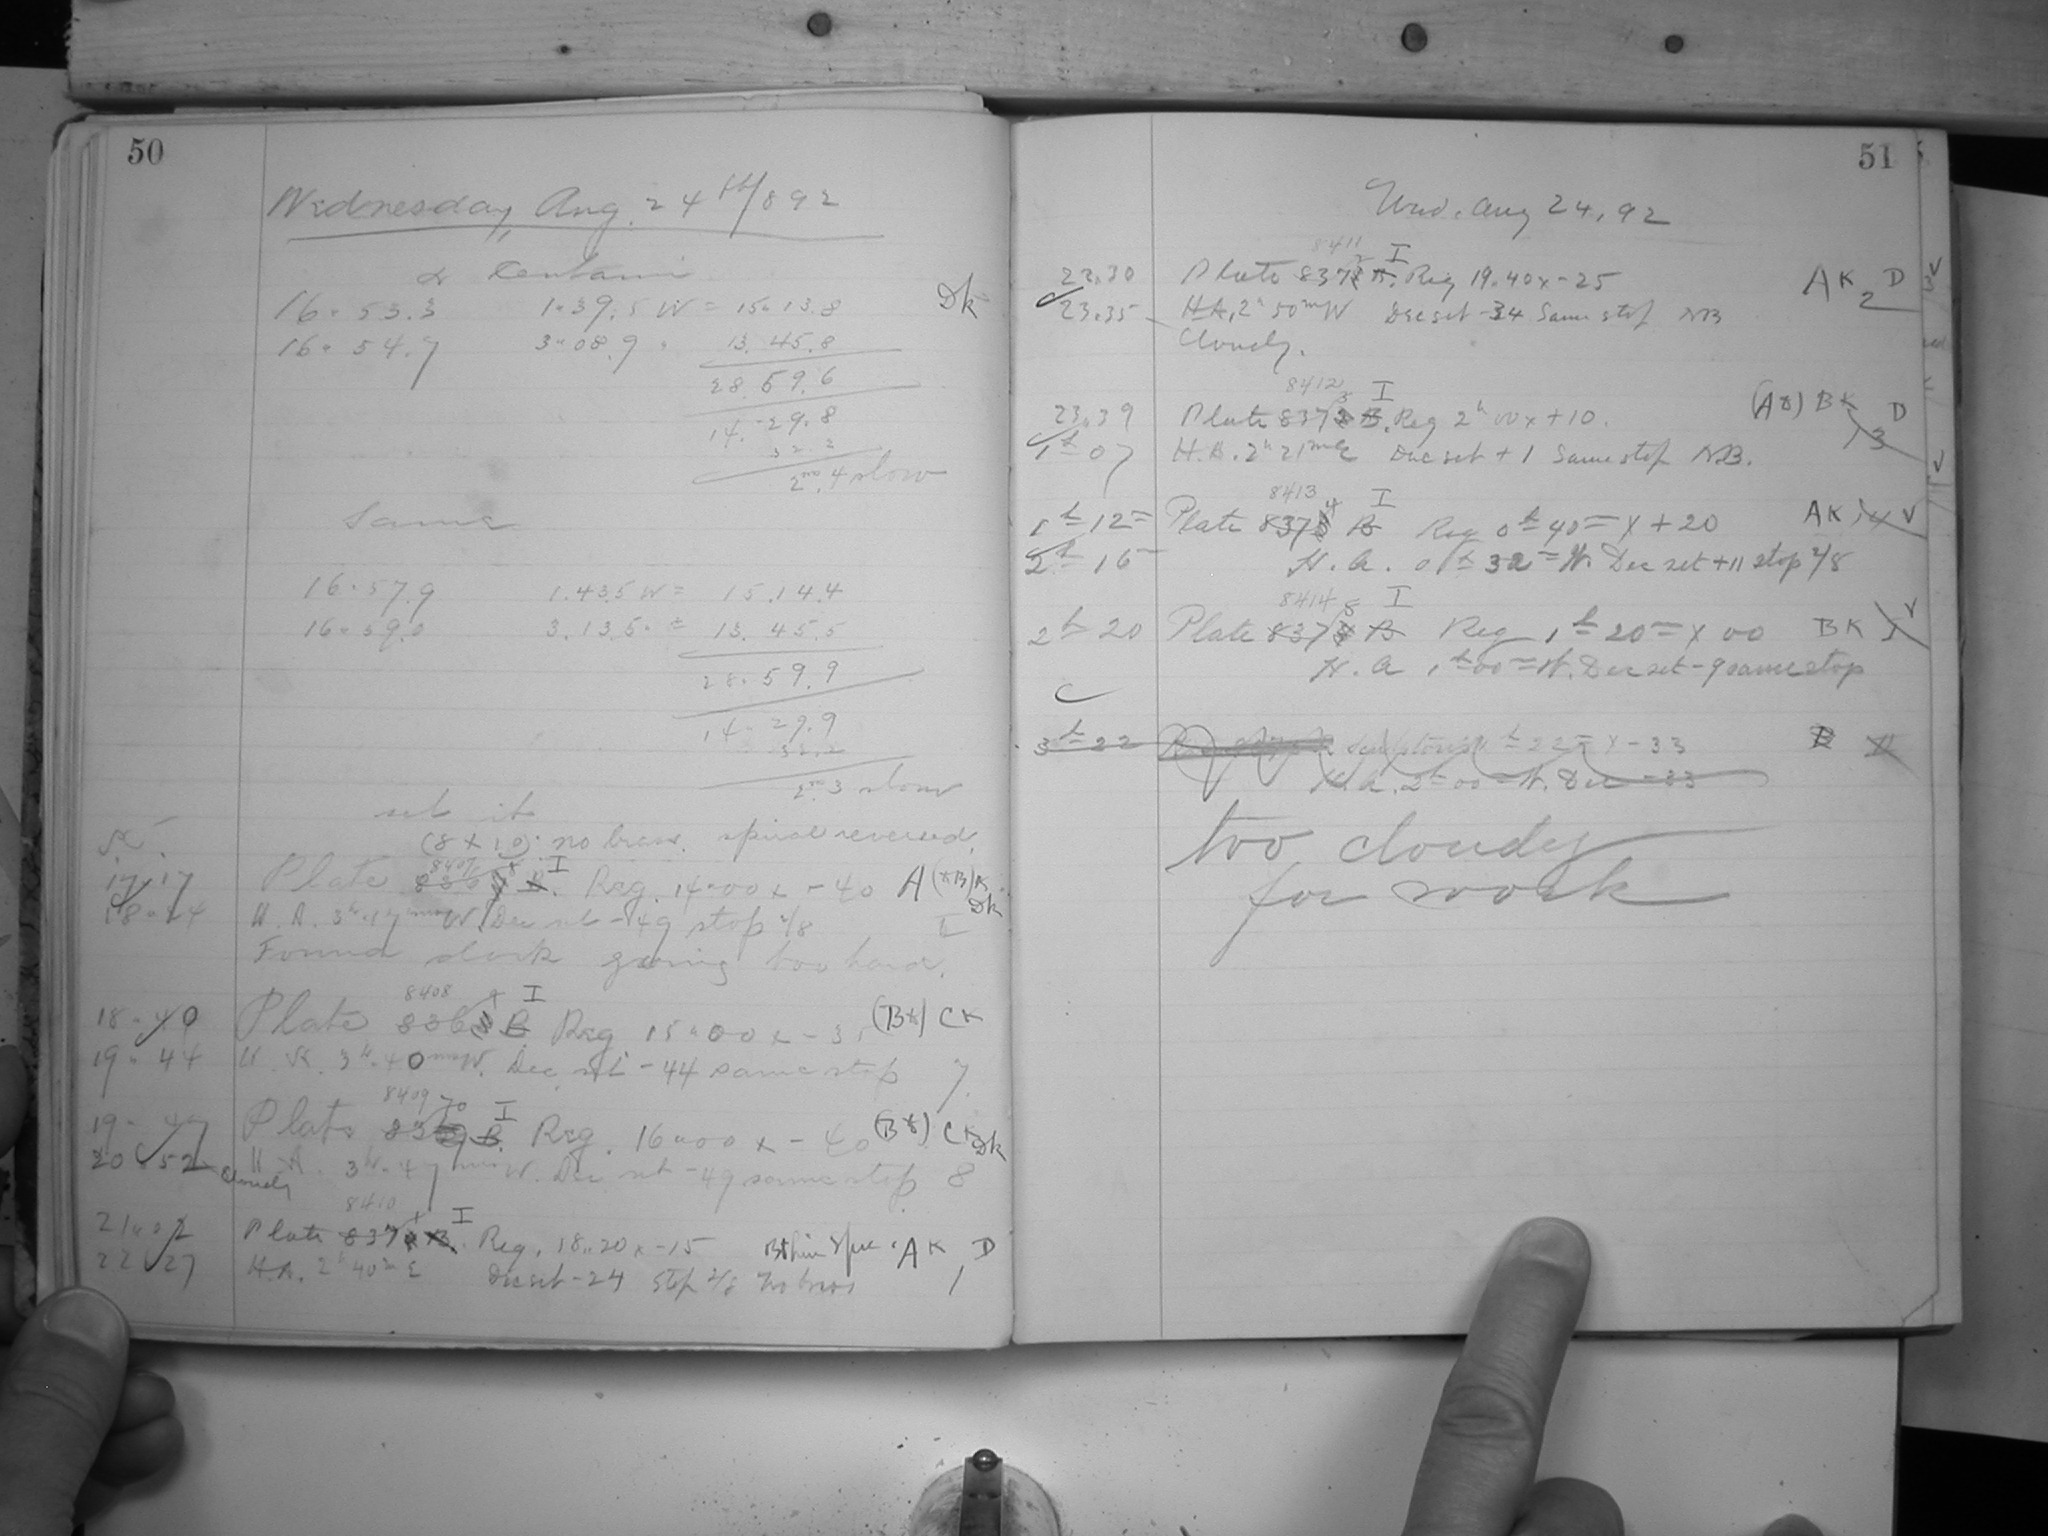 50
Wednesday, Aug. 24th/892
α Centauri
16.53.3 1.39.5 W = 15.13.8 DK
16.54.7 3.08.9 " 13.45.8
28.59.6
14.29.8
32.2
2m.4 slow
Same
16.57.9 1.43.5 W = 15.14.4
16.59.0 3.13.5 " = 13.45.5
28.59.9
14.29.9
32.2
2m.3 slow
set it
(8 x 10) no brass. spiral reversed.
17.17 Plate 8407 I Reg. 14.00 x -40 A (*B) K DK
18.24 H.A. 3h.17m W. Dec set -49 stop 2/8
Found clock going too hard.
18.40 Plate 8408 I Reg 15.00 x -3 (B*) CK
19.44 H.A. 3h.40m W. Dec. set -44 same stop 7
19.47 Plate 8409 I Reg. 16.00 x -40 (B*) CK DK
20.52 Cloudy H.A. 3h.47m W. Dec set -49 same stop 8
21.02 Plate 8410 I Reg. 18.20 x -15 AK D
22.27 H.A. 2h 40m E Dec set -24 Stop 2/8 No brass 1
51
Wed. Aug 24, 92
22.30 Plate 8411 I Reg 19.40 x -25 AK D
23.35 H.A. 2h 50m W Dec set -34 Same stop NB 2
Cloudy.
23.39 Plate 8412 I Reg 2h 00 x +10. (A*) BK D
1h 07 H.A. 2h 21m E Dec set +1 Same stop NB. 3
1h 12m Plate 8413 I Reg 0h 40m x +20 AK 4
2h 16m H.A. 0h 32m W. Dec set +11 stop 2/8
2h 20 Plate 8414 I Reg 1h 20m x 00 BK
H.A. 1h 00m W. Dec set -9 same stop
3h 22 Sculptoris 22m x -33
H.A. 2h 00m W. Dec -33
too cloudy
for work